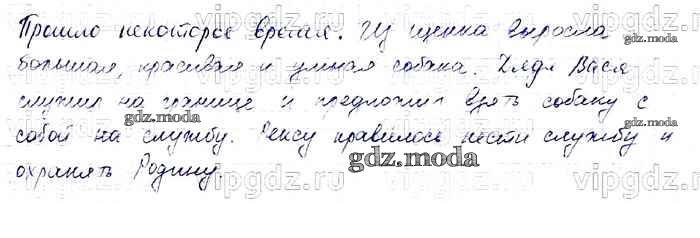 Прошло некоторое время. Из щенка выросла
большая, красивая и умная собака. Дядя Вася
служил на границе и предложил взять собаку с
собой на службу. Рексу нравилось нести службу и
охранять Родину.
gdz.moda
gdz.moda
gdz.moda
gdz.moda
vipgdz.ru
vipgdz.ru
vipgdz.ru
vipgdz.ru